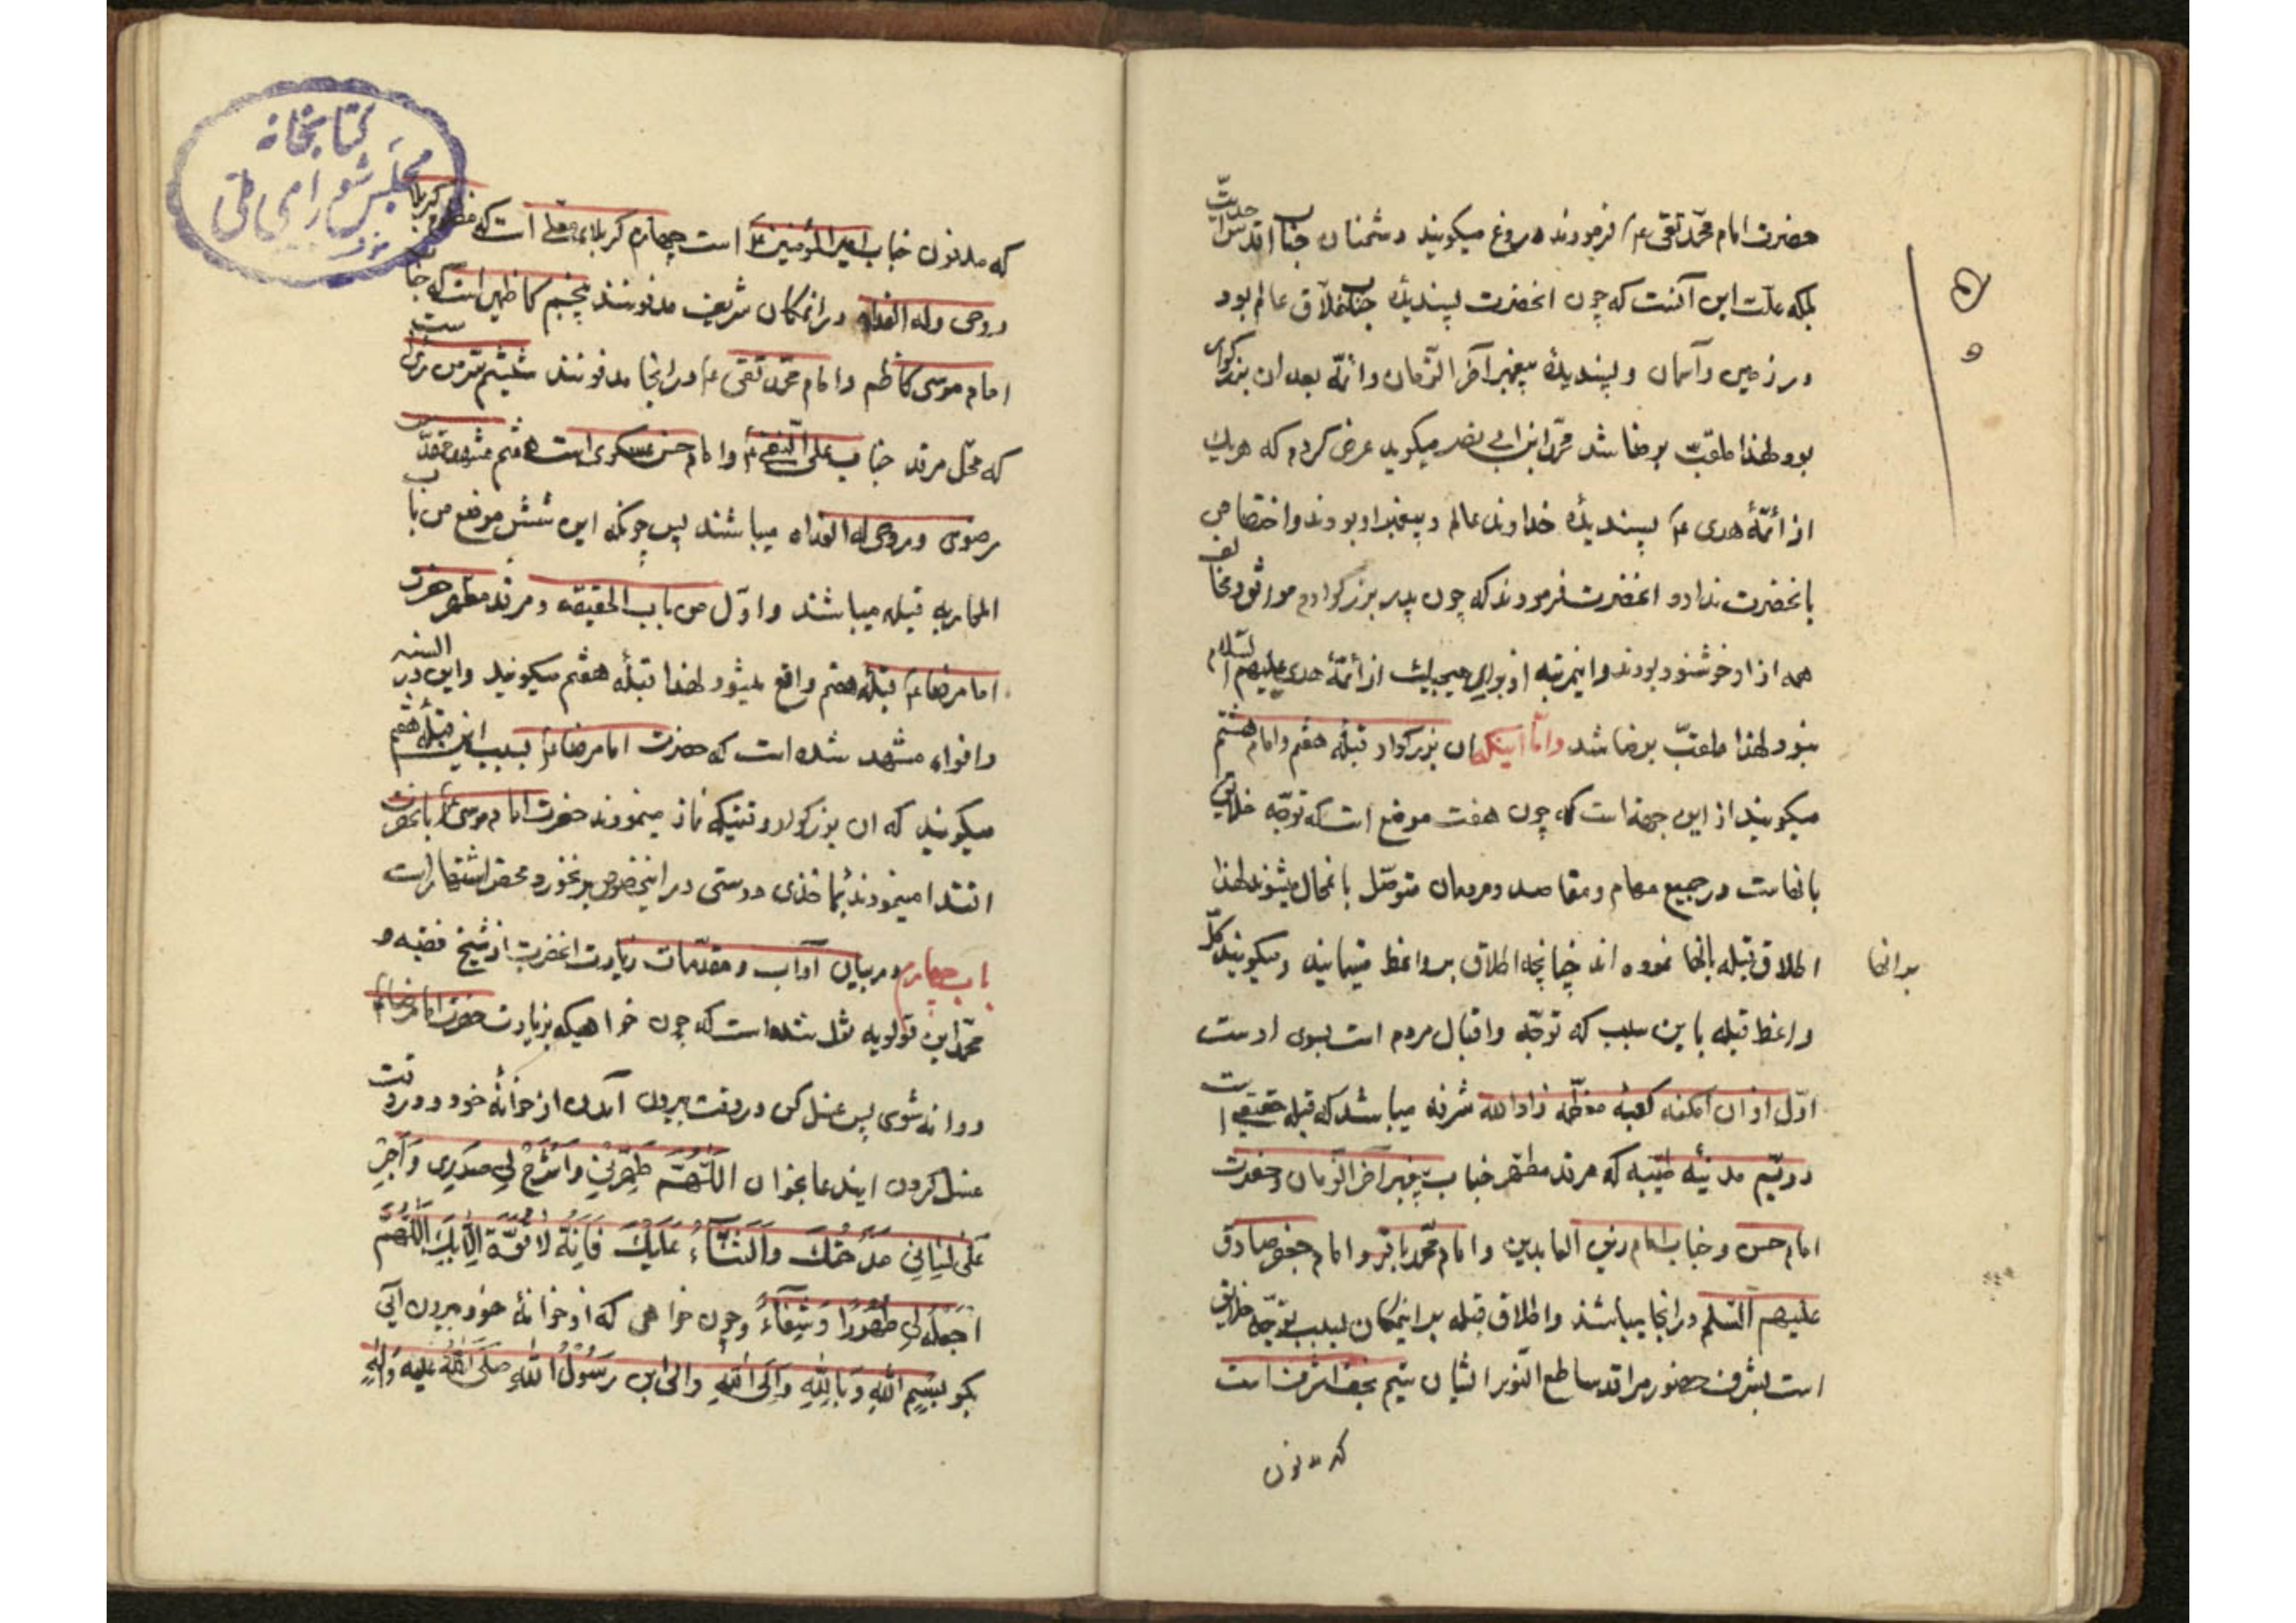 حضرت امام محمّد تقی ع فرمودند دروغ میکویند دشمنان جناب اقدس
بلکه علّت این آنست که چون انحضرت پسندیدهٔ جناب خلّاق عالم بود
در زمین و آسمان و پسندیدهٔ پیغمبر آخر الزّمان و ائمّه بعد ان بزرکوار
بود لهذا ملقّب برضا شد محمّد ابن ابی نصر میکوید عرض کردم که هر یک
از ائمّهٔ هدی ع پسندیدهٔ خداوند عالم و پیغمبر او بودند و اختصاصی
بانحضرت ندارد انحضرت فرمودند که چون پدر بزرکوارم موافق و مخالف
همه از او خوشنود بودند و اینمرتبه از برای هیچیک از ائمّهٔ هدی علیهم السّلام
نبود لهذا ملقّب برضا شد وامّا اینکه ان بزرکوار قبلهٔ هفتم و امام هشتم
میکویند از این جهة است که چون هفت موضع است که توجّه خلایق
بانهاست در جمیع مهام و مقاصد و مردمان متوسّل بانمحال میشوند لهذا
اطلاق قبله بانها نموده اند چنانچه اطلاق بر واعظ مینمایند و میکویند کلّ
بدانها
واعظ قبله باین سبب که توجّه و اقبال مردم است بسوی اوست
اوّل از ان امکنه کعبهٔ معظّمه زاد الله شرفه میباشد که قبله حقیقی است
دویّم مدینهٔ طیّبه که مرقد مطهّر جناب پیغمبر آخر الزّمان و حضرت
امام حسن و جناب امام زین العابدین و امام محمّد باقر و امام جعفر صادق
علیهم السّلم در انجا میباشند و اطلاق قبله بر اینمکان بسبب توجّه خلایق
است بشرف حضور مراقد ساطع النّور ایشان سیّم نجف اشرف است
که مدفون
کتابخانه
مجلس شورای ملّی
که مدفون جناب امیر المؤمنین ع است چهارم کربلای معلّی است که مظلوم کربلا
روحی و له الفداه در انمکان شریف مدفونند پنجم کاظمین است که جناب
امام موسی کاظم و امام محمّد تقی ع در انجا مدفونند ششم سرّ من رأی است
که محلّ مرقد جناب علی النّقی ع و امام حسن عسکری است هفتم مشهد مقدّس
رضوی و روحی له الفداه میباشند پس چونکه این شش موضع من باب
المجاز به قبله میباشند و اوّل من باب الحقیقه و مرقد مطهر حضرت
امام رضا ع قبلهٔ هفتم واقع میشود لهذا قبلهٔ هفتم میکویند و این در السنه
و افواه مشهد شده است که حضرت امام رضا ع بسبب این قبلهٔ هفتم
میکویند که ان بزرکوار وقتیکه نماز مینمودند حضرت امام موسی ع بانحضرت
اقتدا مینمودند بمأخذی درستی در اینخصوص بر نخورد محض اشتهار است
باب چهارم در بیان آداب و مقدّمات زیارت انحضرت از شیخ فقیه و
محمّد ابن قولویه نقل شده است که چون خواهیکه بزیارت حضرت امام رضا ع
روانه شوی پس غسل کن در وقت بیرون آمدن از خوانهٔ خود و در وقت
غسل کردن ایندعا بخوان اَللّهُمَّ طَهِّرْنِي وَ اشْرَحْ لِي صَدْرِي وَ اَجْرِ
عَلى لِسَانِي مَدْحَتَكَ وَ الثَّنآءَ عَلَيْكَ فَاِنَّهُ لا قُوَّةَ اِلّا بِكَ اَللّهُمَّ
اجْعَلْهُ لِي طَهُورًا وَ شِفآءً و چون خواهی که از خوانهٔ خود بیرون آئی
بکو بِسْمِ اللهِ وَ بِاللهِ وَ اِلَى اللهِ وَ الى ابن رَسُولُ اللهِ صَلَّى اللهُ عليه وَ الِهِ